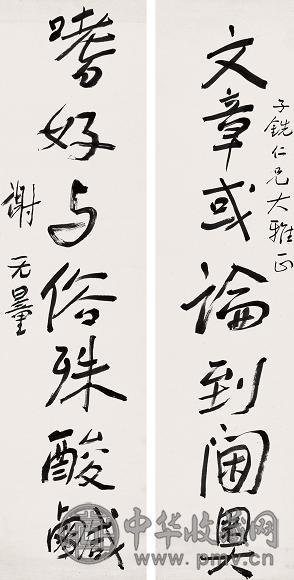 文章或論到閫奥
子銑仁兄大雅正
嗜好与俗殊酸鹹
谢无量
中华收藏网
www.pmv.cn